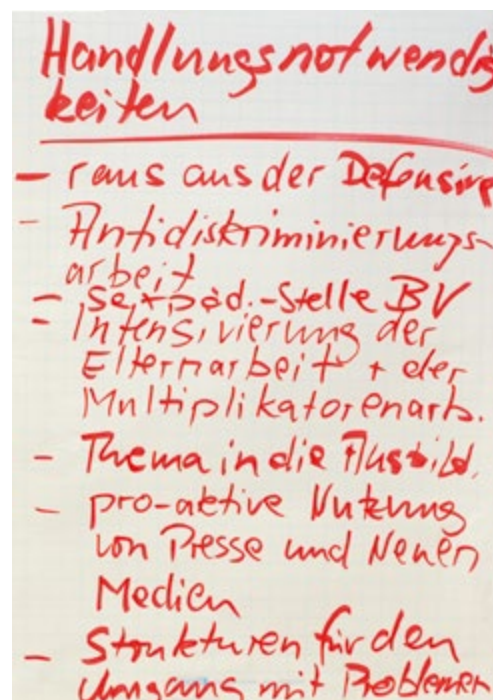 Handlungsnotwendig
keiten
- raus aus der Defensive
- Antidiskriminierungs-
arbeit
- sexpäd.-Stelle BV
- Intensivierung der
Elternarbeit + der
Multiplikatorenarb.
- Thema in die Ausbild.
- pro-aktive Nutzung
von Presse und Neuen
Medien
- Strukturen für den
Umgang mit Problemen